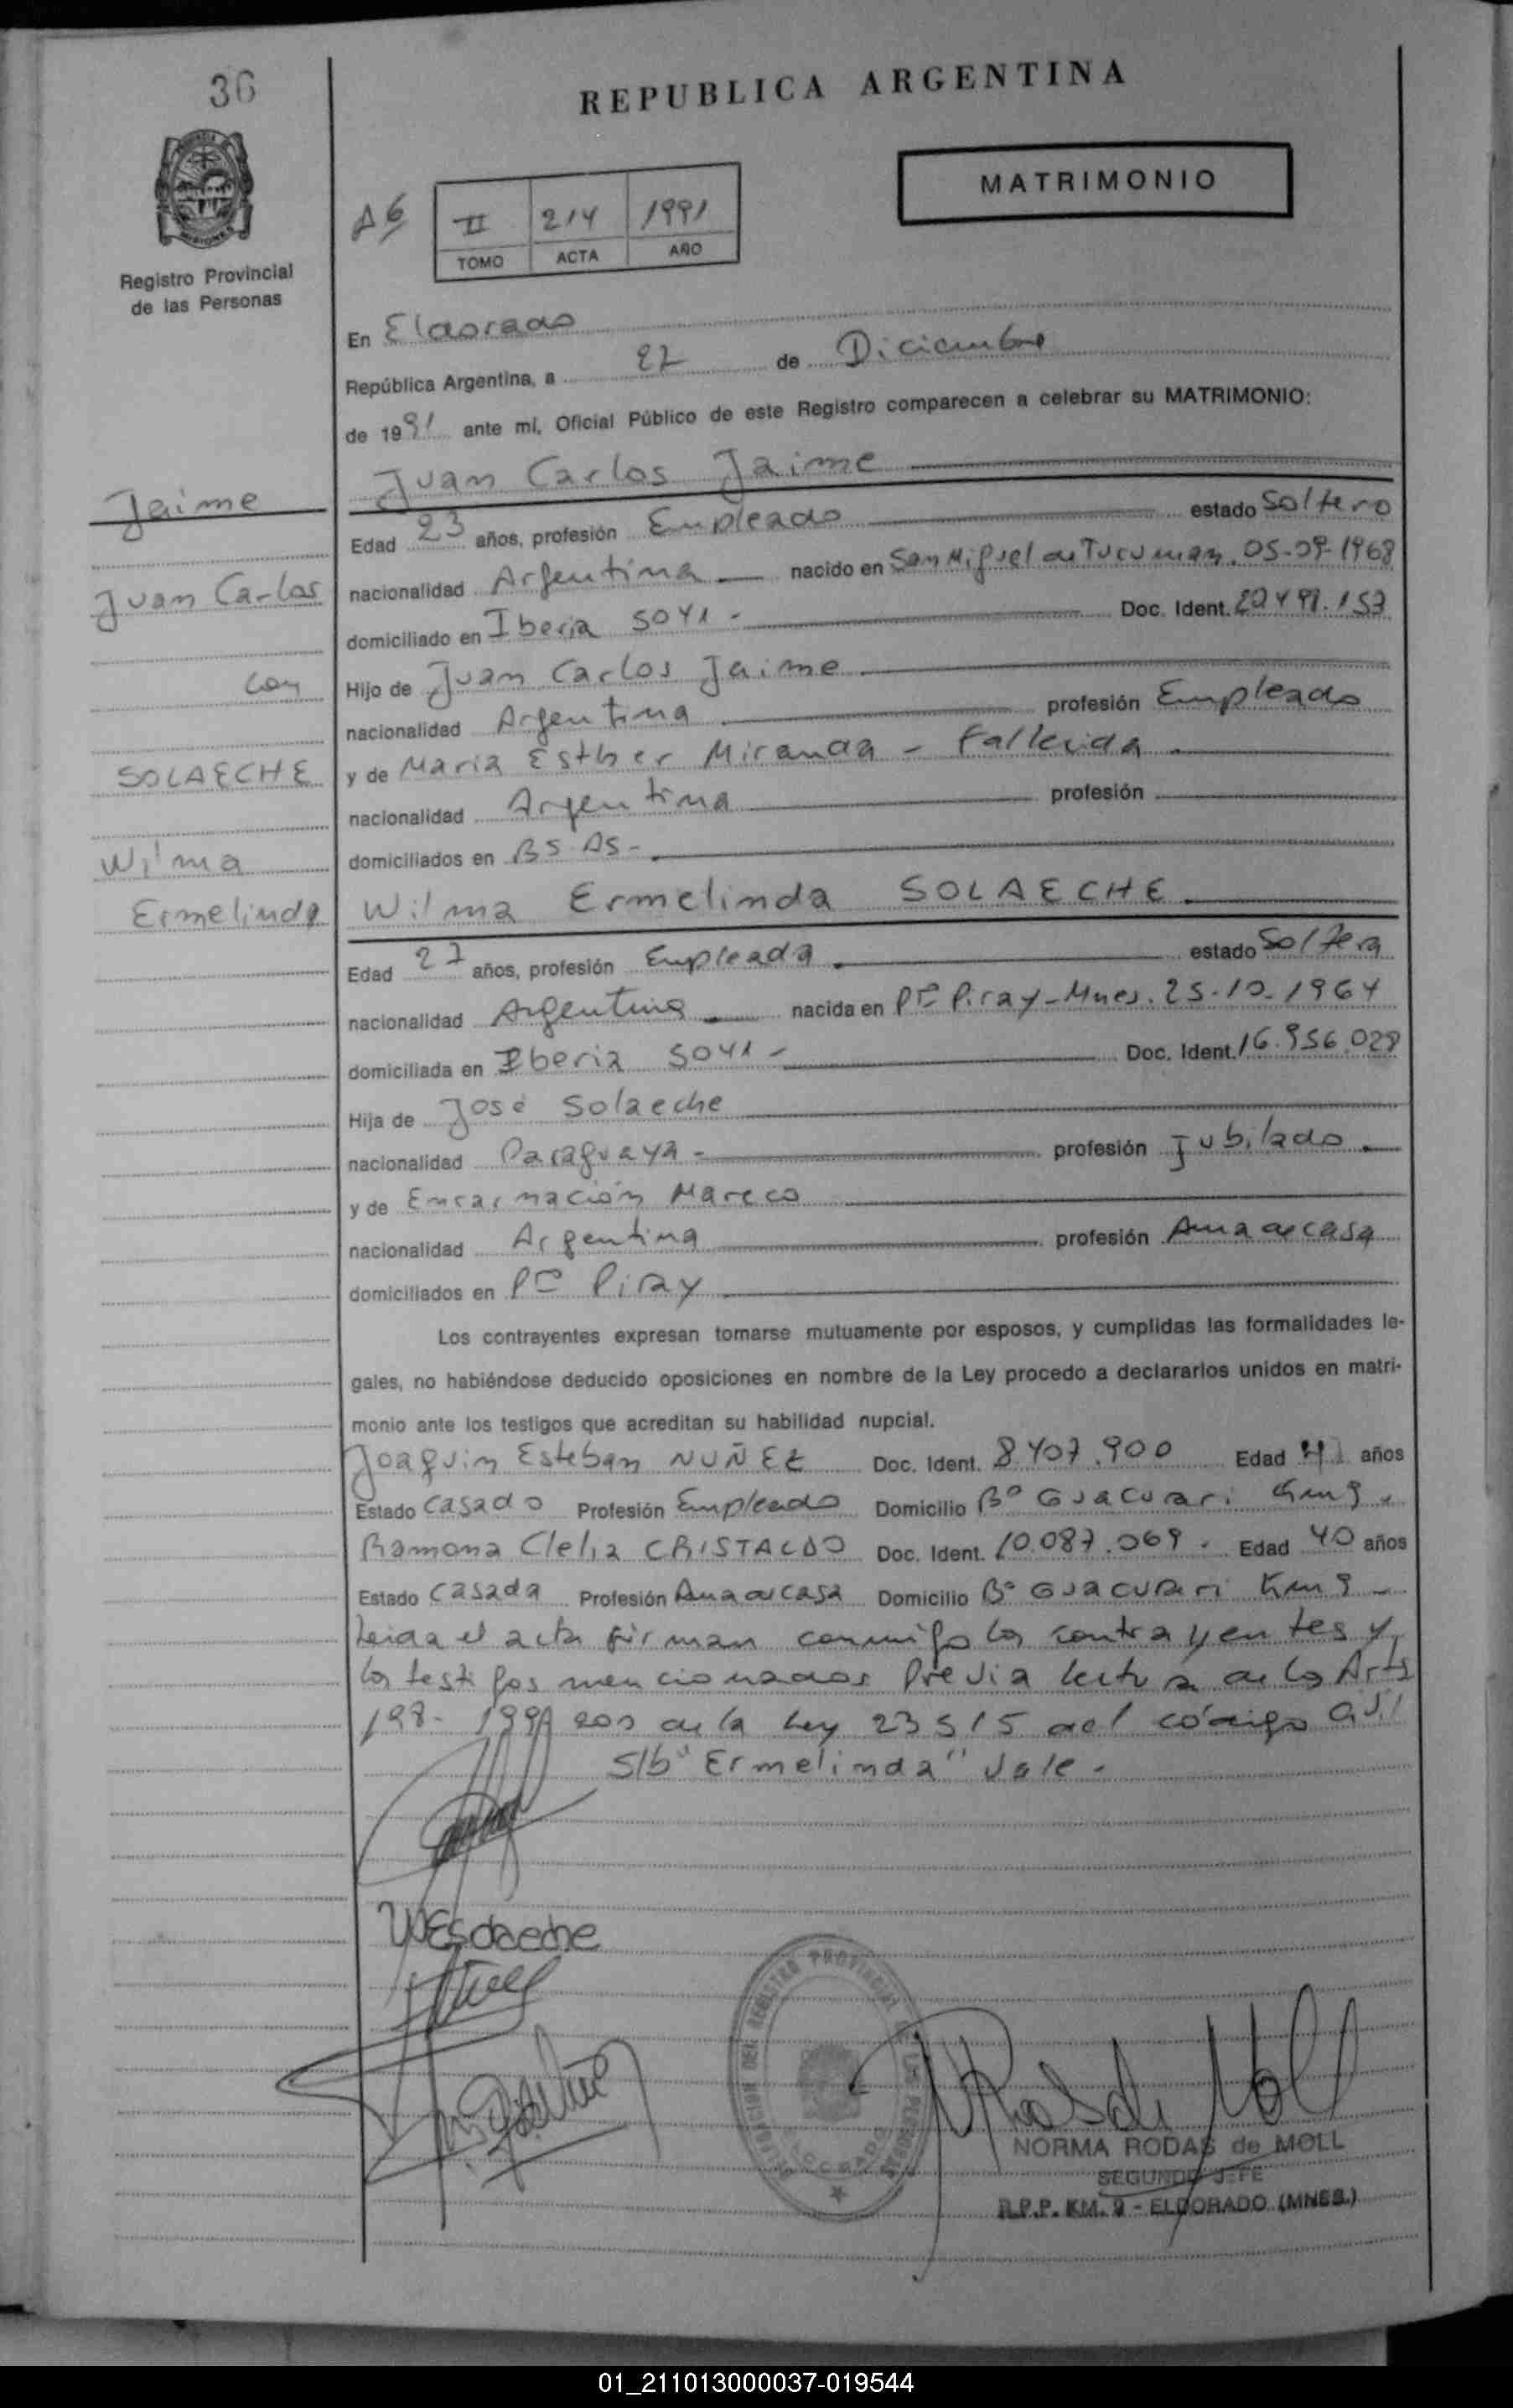 36
REPUBLICA ARGENTINA
MATRIMONIO
II 214 1991
TOMO ACTA AÑO
Registro Provincial
de las Personas
En Eldorado
República Argentina, a 27 de Diciembre
de 1991 ante mí, Oficial Público de este Registro comparecen a celebrar su MATRIMONIO:
Jaime
Juan Carlos
con
SOLAECHE
Wilma
Ermelinda
Juan Carlos Jaime
Edad 23 años, profesión Empleado estado Soltero
nacionalidad Argentina nacido en San Miguel de Tucuman. 05-09-1968
domiciliado en Iberia 5041 - Doc. Ident.
Hijo de Juan Carlos Jaime
nacionalidad Argentina profesión Empleado
y de Maria Esther Miranda - Fallecida
nacionalidad Argentina profesión
domiciliados en BS AS -
Wilma Ermelinda SOLAECHE
Edad 27 años, profesión Empleada estado Soltera
nacionalidad Argentina nacida en Pto Piray - Mnes. 25-10-1964
domiciliada en Iberia 5041 - Doc. Ident. 16.956.028
Hija de José Solaeche
nacionalidad Paraguaya - profesión Jubilado
y de Encarnación Mareco
nacionalidad Argentina profesión Ama de casa
domiciliados en Pto Piray
Los contrayentes expresan tomarse mutuamente por esposos, y cumplidas las formalidades le-
gales, no habiéndose deducido oposiciones en nombre de la Ley procedo a declararlos unidos en matri-
monio ante los testigos que acreditan su habilidad nupcial.
Joaquin Esteban NUÑEZ Doc. Ident. 8.407.900 Edad 41 años
Estado Casado Profesión Empleado Domicilio Bº Guacurari Km 9 -
Ramona Clelia CRISTALDO Doc. Ident. 10.087.069 - Edad 40 años
Estado Casada Profesión Ama de casa Domicilio Bº Guacurari Km 9 -
Leida el acta firman conmigo los contrayentes y
los testigos mencionados Previa lectura de los Arts
198 - 199 200 de la Ley 23515 del código civil
S/b "Ermelinda" Vale -
WESolaeche
DELEGACION DEL REGISTRO PROVINCIAL DE LAS PERSONAS
ELDORADO
NORMA RODAS de MOLL
SEGUNDO JEFE
R.P.P. KM. 9 - ELDORADO (MNES.)
01_211013000037-019544